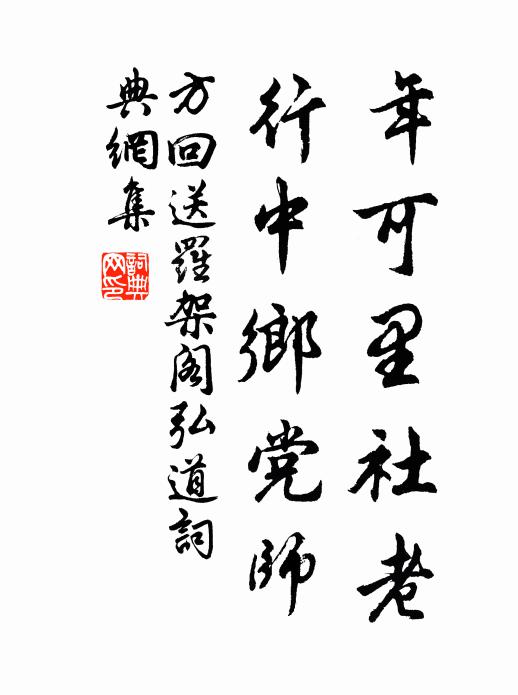 年可里社老
行中鄉党師
方回送羅架阁弘道詞
典網集
詞典网印